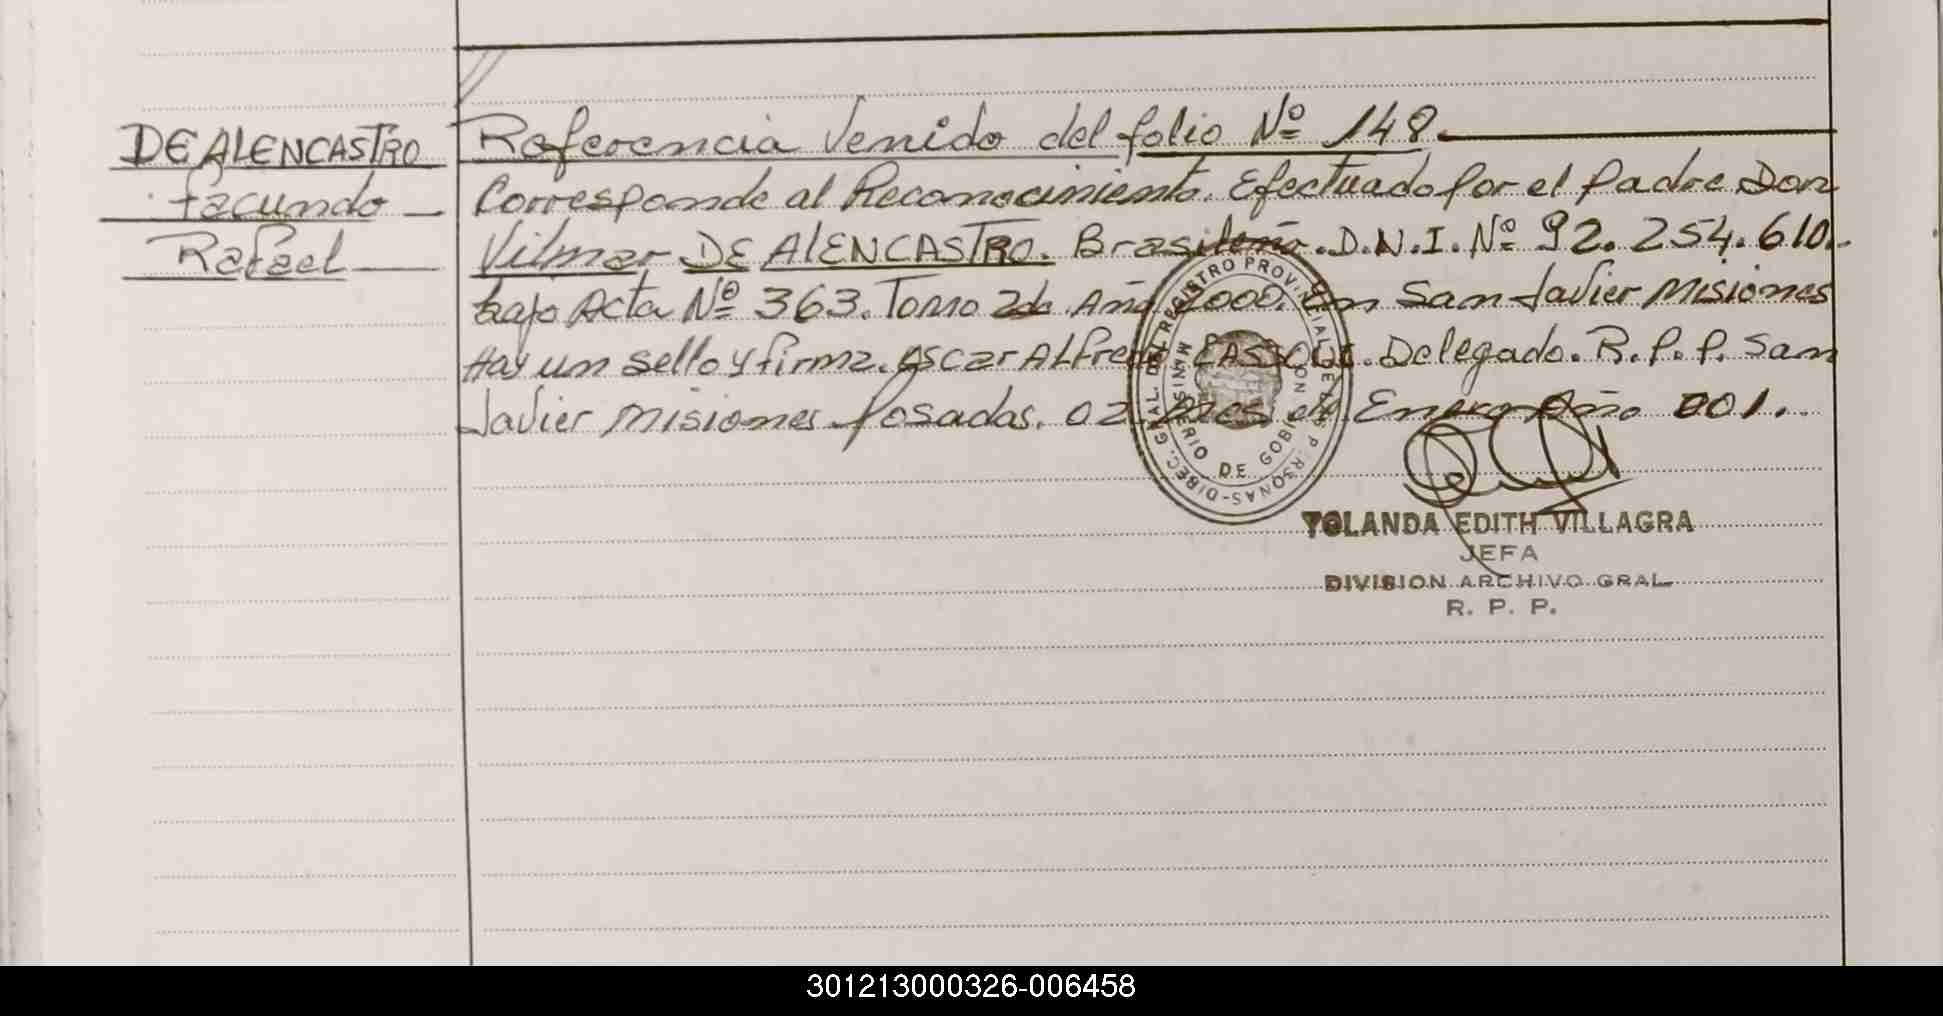 DE ALENCASTRO
facundo
Rafael
Referencia Venido del folio Nº 148.
Corresponde al Reconocimiento. Efectuado por el padre Don
Vilmar DE ALENCASTRO. Brasileño. D.N.I. Nº 92.254.610.
bajo Acta Nº 363. Tomo 2do Año 2000. En San Javier Misiones
Hay un sello y firma. Oscar Alfredo Delegado. R.P.P. San
Javier Misiones Posadas. 02 mes de Enero Año 001.
DIREC. GRAL. DEL REGISTRO PROVINCIAL DE LAS PERSONAS
MINISTERIO DE GOBIERNO
YOLANDA EDITH VILLAGRA
JEFA
DIVISION ARCHIVO GRAL
R. P. P.
301213000326-006458